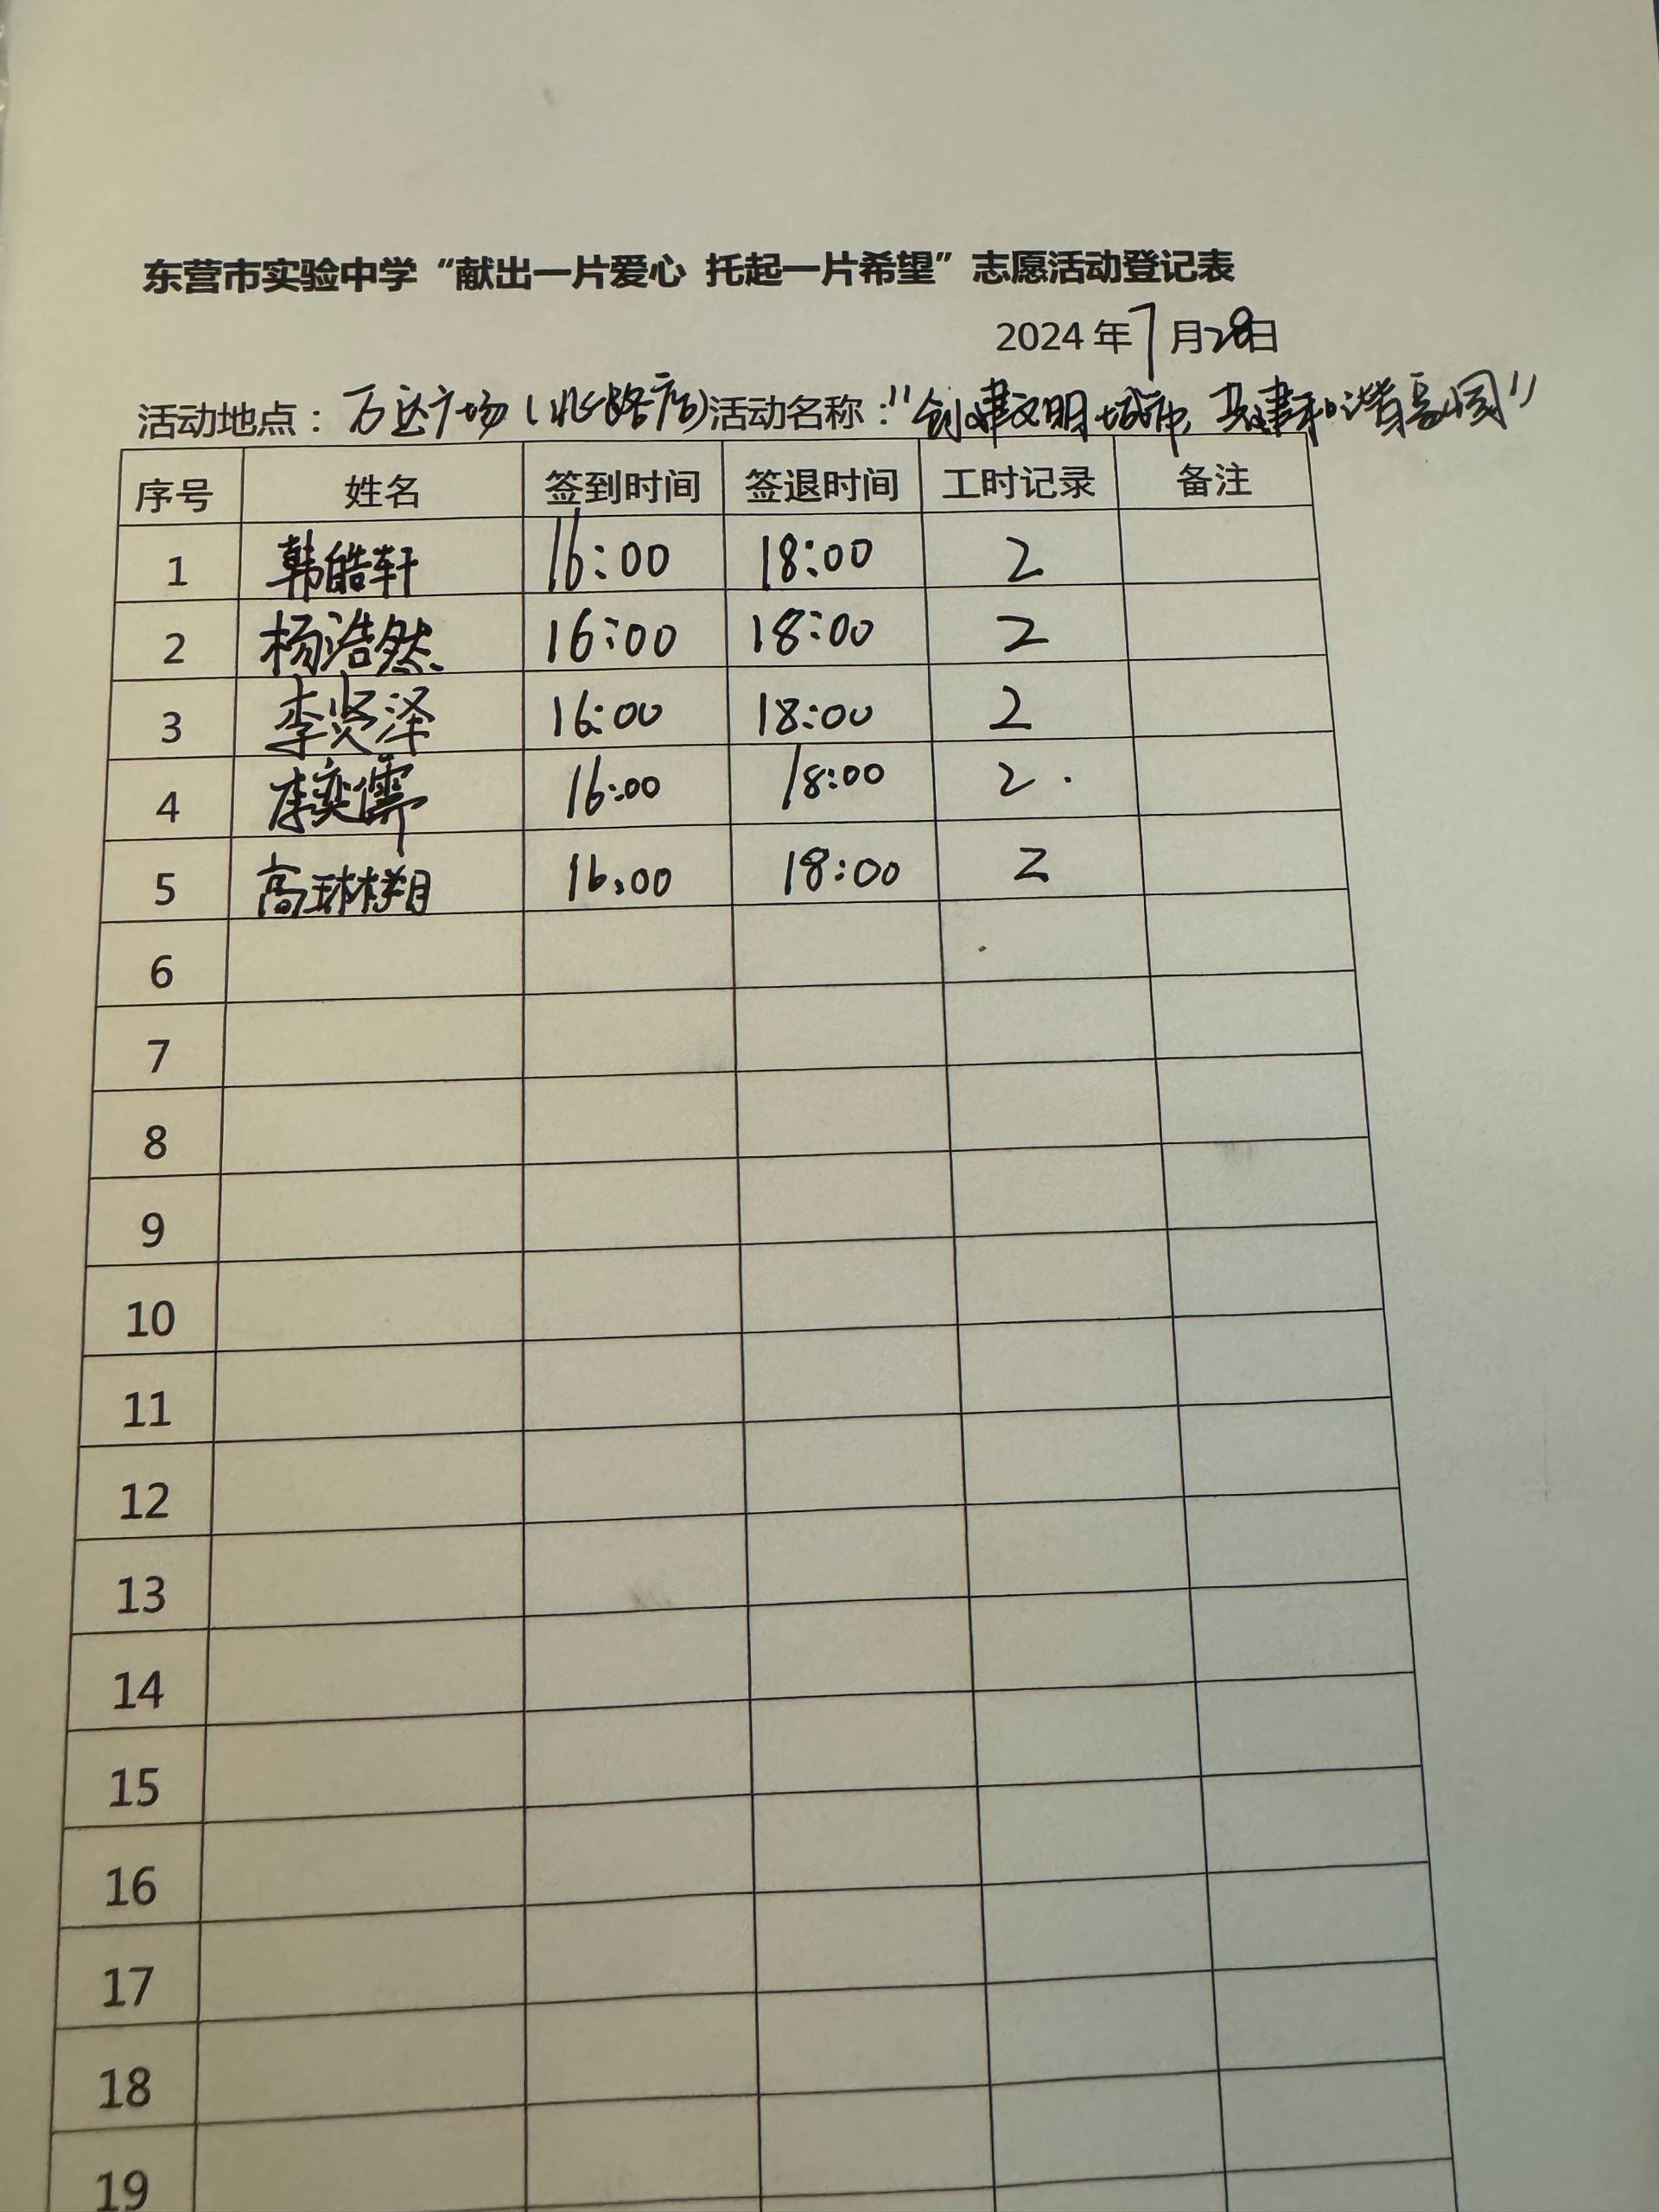 东营市实验中学“献出一片爱心 托起一片希望”志愿活动登记表
2024年7月28日
活动地点：万达广场(北路店)活动名称："创建文明城市，共建和谐家园"
序号 姓名 签到时间 签退时间 工时记录 备注
1 韩皓轩 16:00 18:00 2
2 杨浩然 16:00 18:00 2
3 李贤泽 16:00 18:00 2
4 李奕儒 16:00 18:00 2
5 高琳翔 16:00 18:00 2
6
7
8
9
10
11
12
13
14
15
16
17
18
19